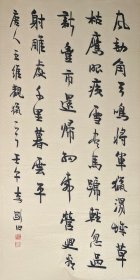 風勁角弓鳴將軍獵渭城草
枯鷹眼疾雪盡馬蹄輕忽過
新豐市還歸細柳營回看
射雕處千里暮雲平
唐人王維觀獵一首壬午春